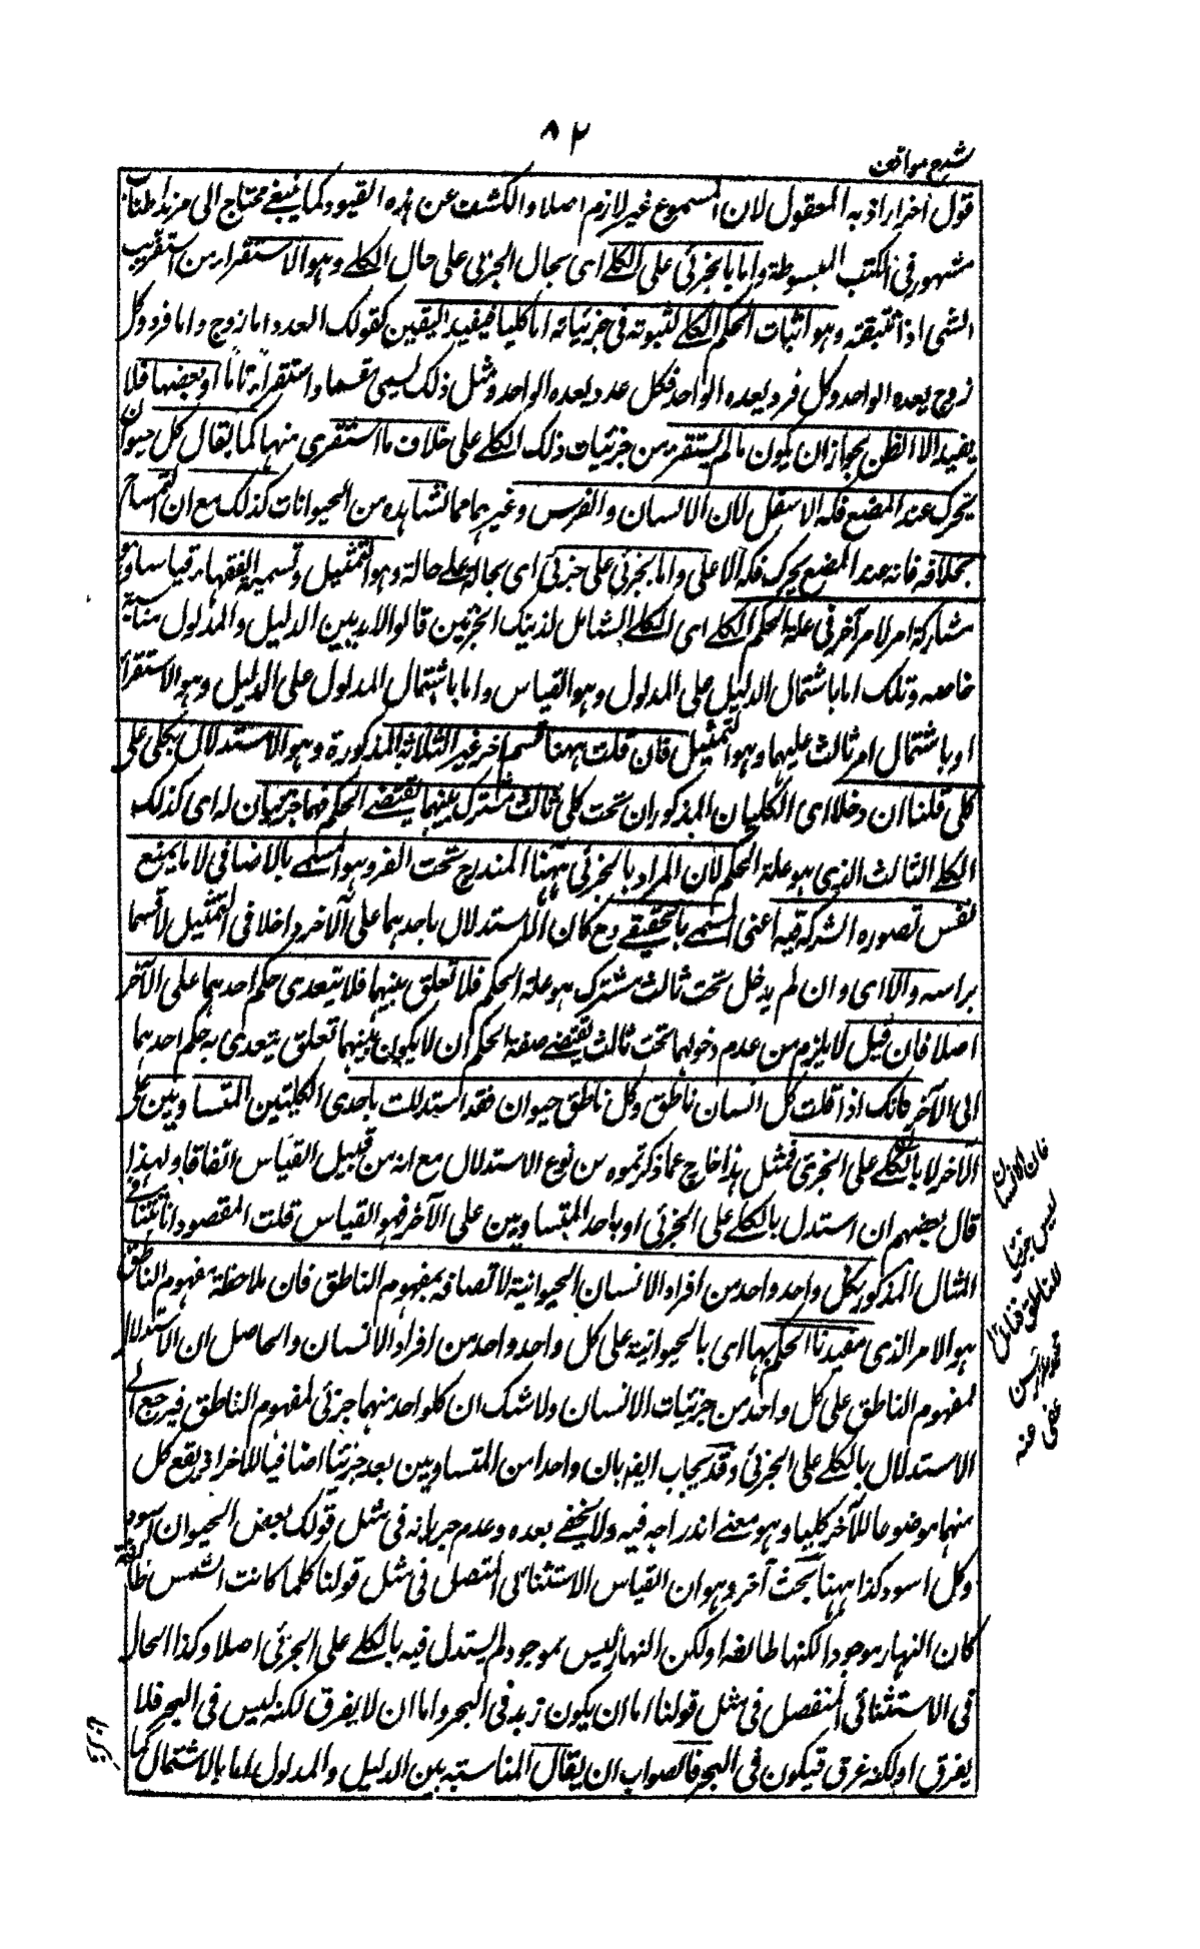 ٨٢
شرح مواقف
قول آخر اراد به المعقول لان المسموع غير لازم اصلا والكشف عن هذه القيود كما ينبغي محتاج الى مزيد اطناب
مشهور في الكتب المبسوطة واما بالجزئي على الكلي اى بحال الجزئي على حال الكلي وهو الاستقراء من استقريت
الشى اذا تتبعته وهو اثبات الحكم الكلي لثبوته في جزئياته اما كليا فيفيد اليقين كقولك العدد اما زوج واما فرد وكل
زوج يعده الواحد وكل فرد يعده الواحد فكل عدد يعده الواحد ومثل ذلك يسمى قسما واستقراء تاما او بعضها فلا
يفيد الا الظن لجواز ان يكون ما لم يستقر من جزئيات ذلك الكلي على خلاف ما استقرى منها كما يقال كل حيوان
يتحرك عند المضغ فكه الاسفل لان الانسان والفرس وغيرهما مما نشاهده من الحيوانات كذلك مع ان التمساح
بخلافه فانه عند المضغ يحرك فكه الاعلى واما بجزئي على جزئي اى بحاله على حاله وهو التمثيل وتسميه الفقهاء قياسا وهو
مشاركة امر لامر آخر في علة الحكم الكلي اى الكلي الشامل لذينك الجزئين قالوا لابد بين الدليل والمدلول مناسبة
خاصه وتلك اما باشتمال الدليل على المدلول وهو القياس واما باشتمال المدلول على الدليل وهو الاستقراء
او باشتمال امر ثالث عليهما وهو التمثيل فان قلت ههنا قسم آخر غير الثلاثة المذكورة وهو الاستدلال بكلي على
كلي قلنا ان دخلا اى الكليان المذكوران تحت كلي ثالث مشترك بينهما يقتضي الحكم فهما جزئيان له اى كذلك
الكلي الثالث الذى هو علة الحكم لان المراد بالجزئي ههنا المندرج تحت الغير وهو المسمى بالاضافي لا ما يمنع
نفس تصوره الشركة فيه اعنى المسمى بالحقيقي وح كان الاستدلال باحدهما على الآخر داخلا في التمثيل لا قسما
براسه والا اى وان لم يدخل تحت ثالث مشترك هو علة الحكم فلا تعلق بينهما فلا يتعدى حكم احدهما على الآخر
اصلا فان قيل لا يلزم من عدم دخولهما تحت ثالث يقتضي صفة الحكم ان لا يكون بينهما تعلق يتعدى به حكم احدهما
الى الآخر فانك اذا قلت كل انسان ناطق وكل ناطق حيوان فقد استدللت باحدى الكليتين المتساويين على
الآخر لا بالكلي على الجزئي فمثل هذا خارج عما ذكرتموه من نوع الاستدلال مع انه من قبيل القياس اتفاقا ولهذا
قال بعضهم ان استدل بالكلي على الجزئي او باحد المتساويين على الآخر فهو القياس قلت المقصود اثباتنا في
المثال المذكور لكل واحد واحد من افراد الانسان الحيوانية لاتصافه بمفهوم الناطق فان ملاحظة مفهوم الناطق
هو الامر الذى مفيدنا الحكم بها اى بالحيوانية على كل واحد واحد من افراد الانسان والحاصل ان الاستدلال
بمفهوم الناطق على كل واحد من جزئيات الانسان ولا شك ان كلواحد منهما جزئي لمفهوم الناطق فيرجع الى
الاستدلال بالكلي على الجزئي وقد يجاب ايضا بان واحدا من المتساويين يعد جزئيا اضافيا للآخر اذ يقع كل
منهما موضوعا للآخر كليا وهو معنى اندراجه فيه ولا يخفى بعده وعدم جريانه في مثل قولك بعض الحيوان اسود
وكل اسود كذا ههنا بحث آخر وهو ان القياس الاستثنائي المتصل في مثل قولنا كلما كانت الشمس طالعة
كان النهار موجودا لكنها طالعة او لكن النهار ليس بموجود لم يستدل فيه بالكلي على الجزئي اصلا وكذا الحال
في الاستثنائي المنفصل في مثل قولنا اما ان يكون زيد في البحر واما ان لا يغرق لكنه ليس في البحر فلا
يغرق او لكنه غرق فيكون في البحر فالصواب ان يقال المناسبة بين الدليل والمدلول اما بالاشتمال كما
فان الانسان
ليس جزئيا
للناطق فتامل
عفى عنه